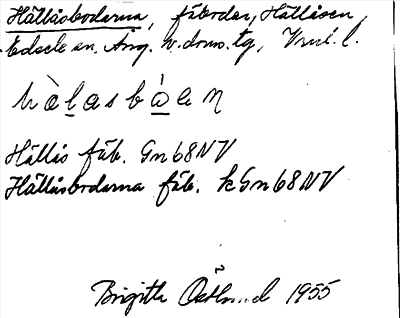 Hällåsbodarna, fäbodar, Hällåsen,
Edsele sn. Ång. V. doms. tg,
hàlasbòa en
Hällås fäb. Gn68NV
Hällåsbodarna fäb. kGn68NV
Brigitta Östlund 1955